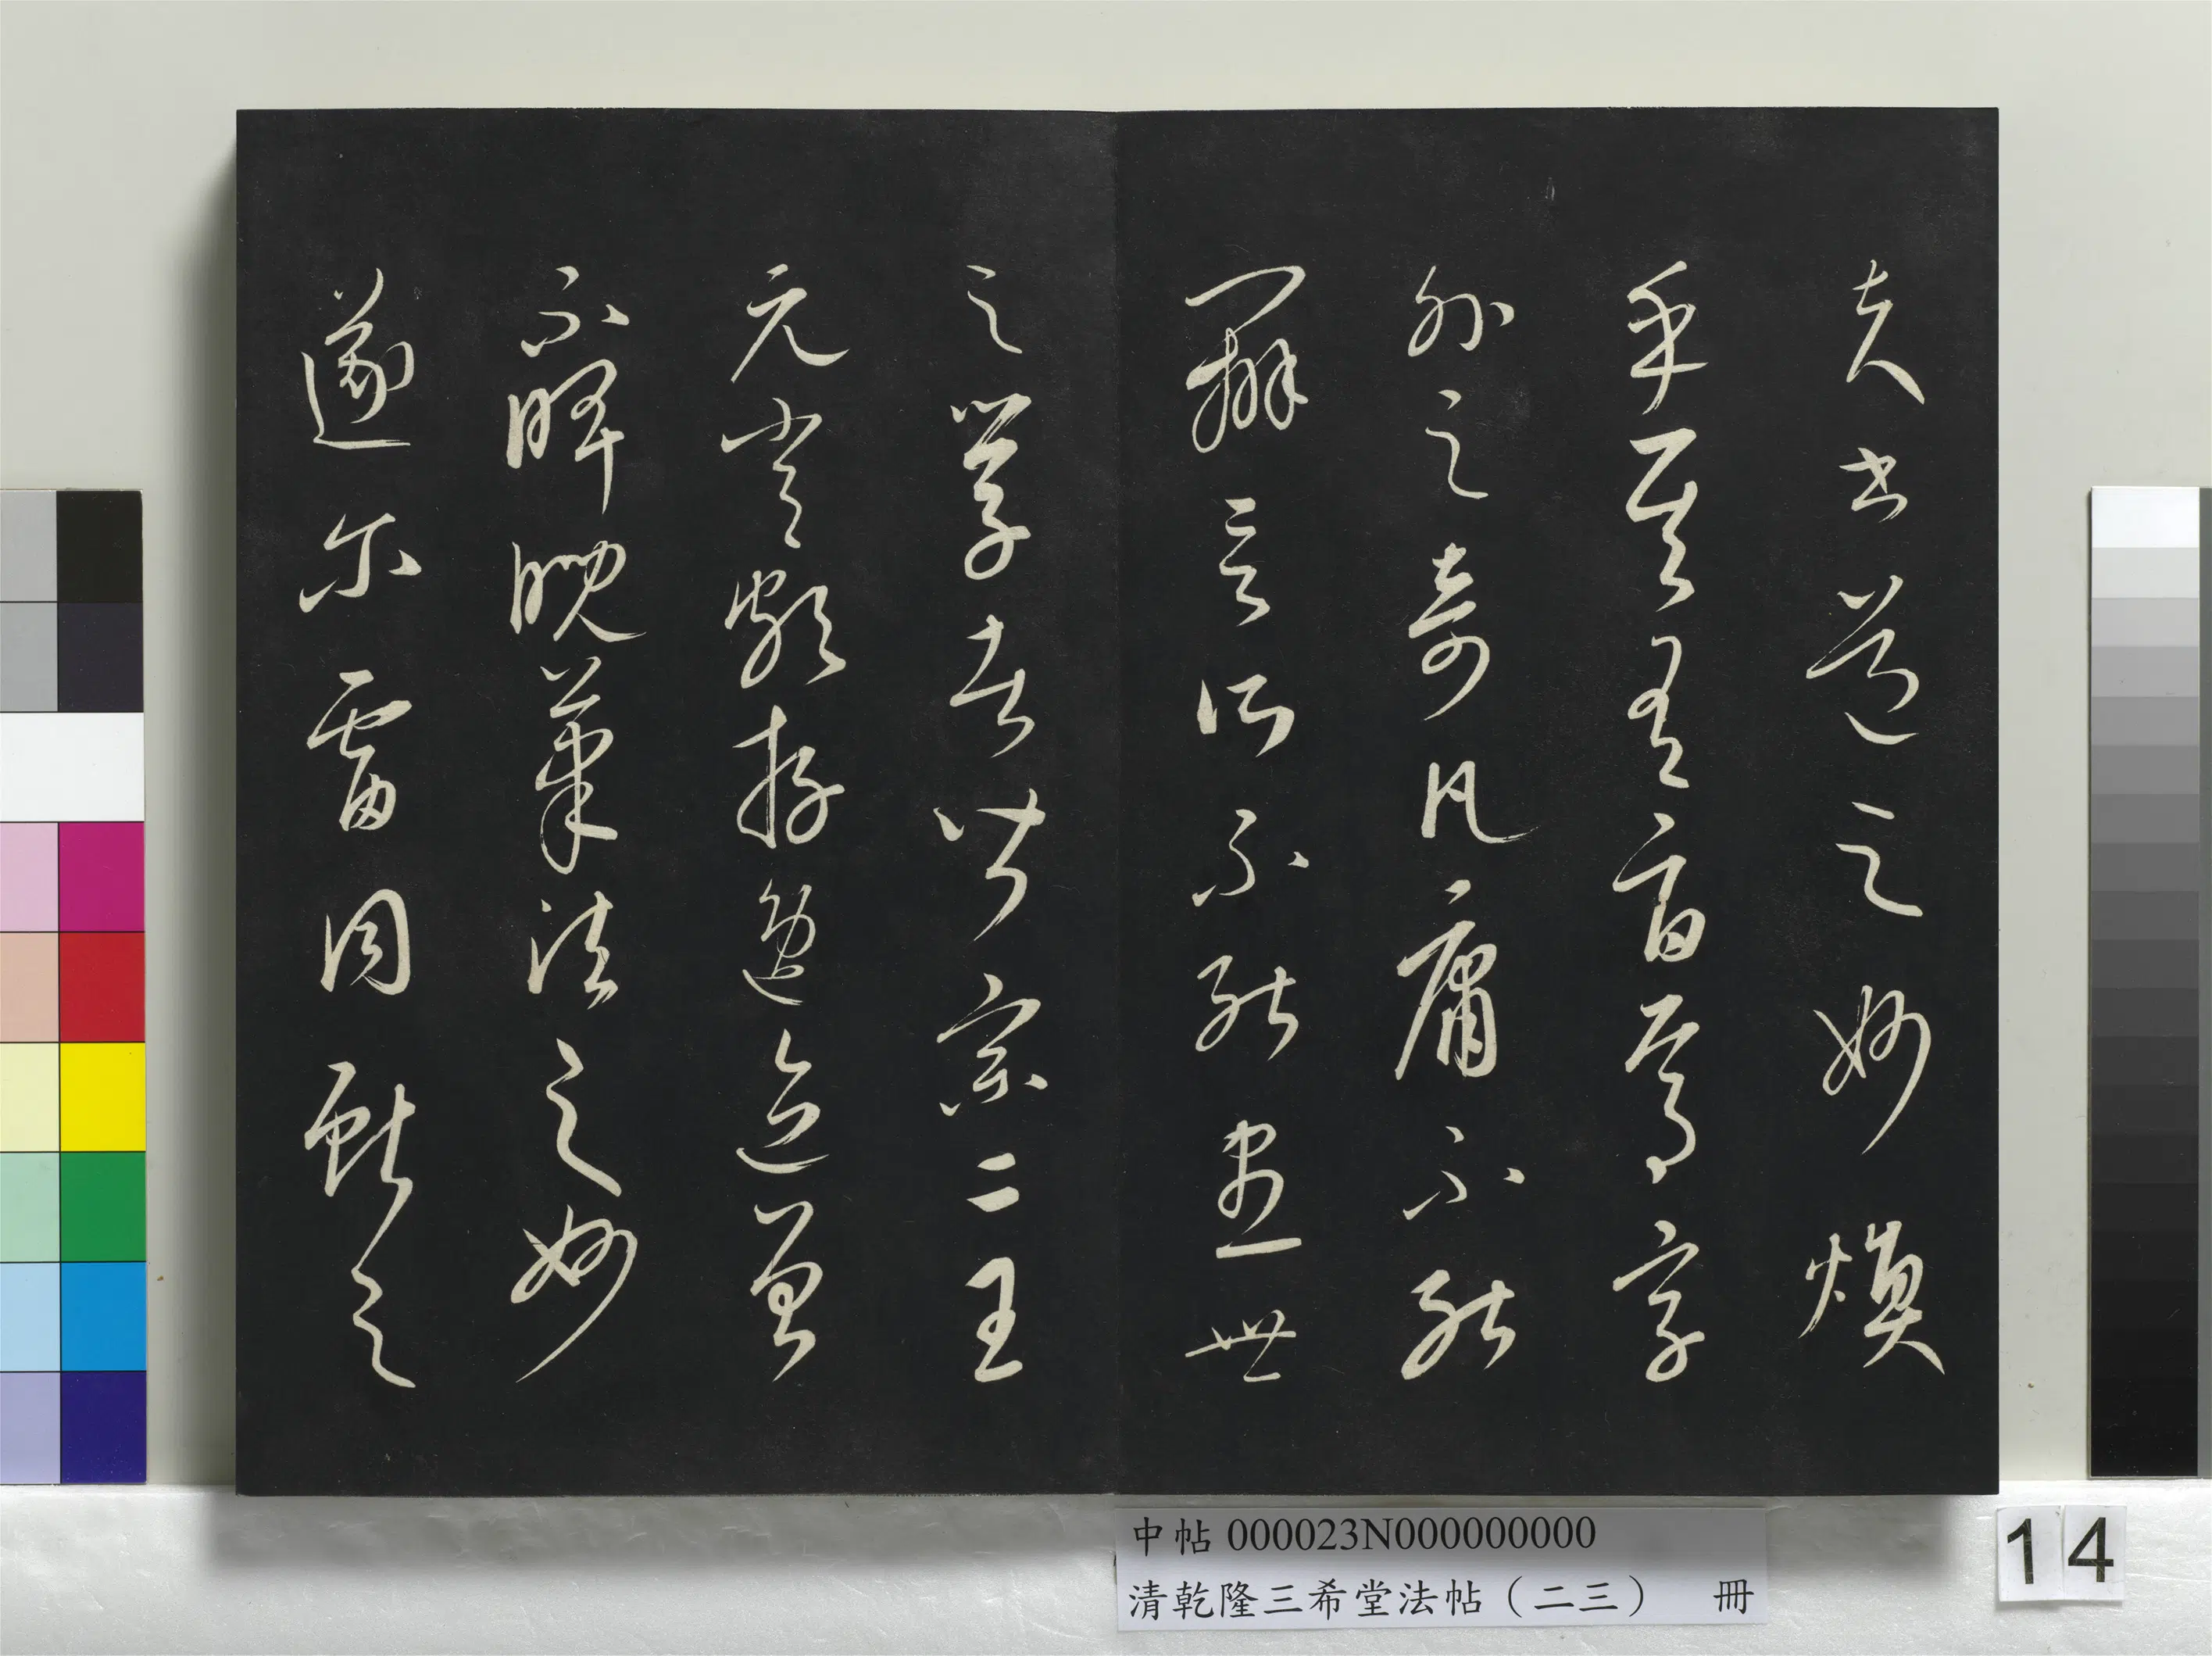 夫書道之妙煥
乎其有旨焉字
外之奇凡庸不能
辨言所不能盡世
之學者皆宗二王
元常頗存逸迹曾
不睥睨筆法之妙
遂尔雷同獻之
中帖 000023N000000000
清乾隆三希堂法帖(二三) 冊
14